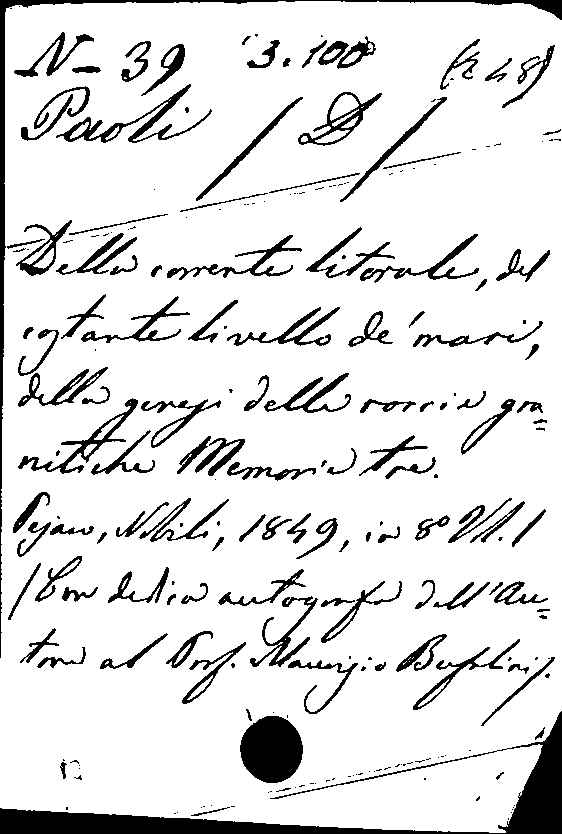 N- 39 3.100 (R 48)
Paoli / D /
Della corrente litorale, del
costante livello de' mari,
della genesi delle roccie gra=
nitiche Memorie tre.
Pesaro, Nobili, 1849, in 8º Vl. 1
/ Con dedica autografa dell'Au=
tore al Prof. Maurizio Bufalini /.